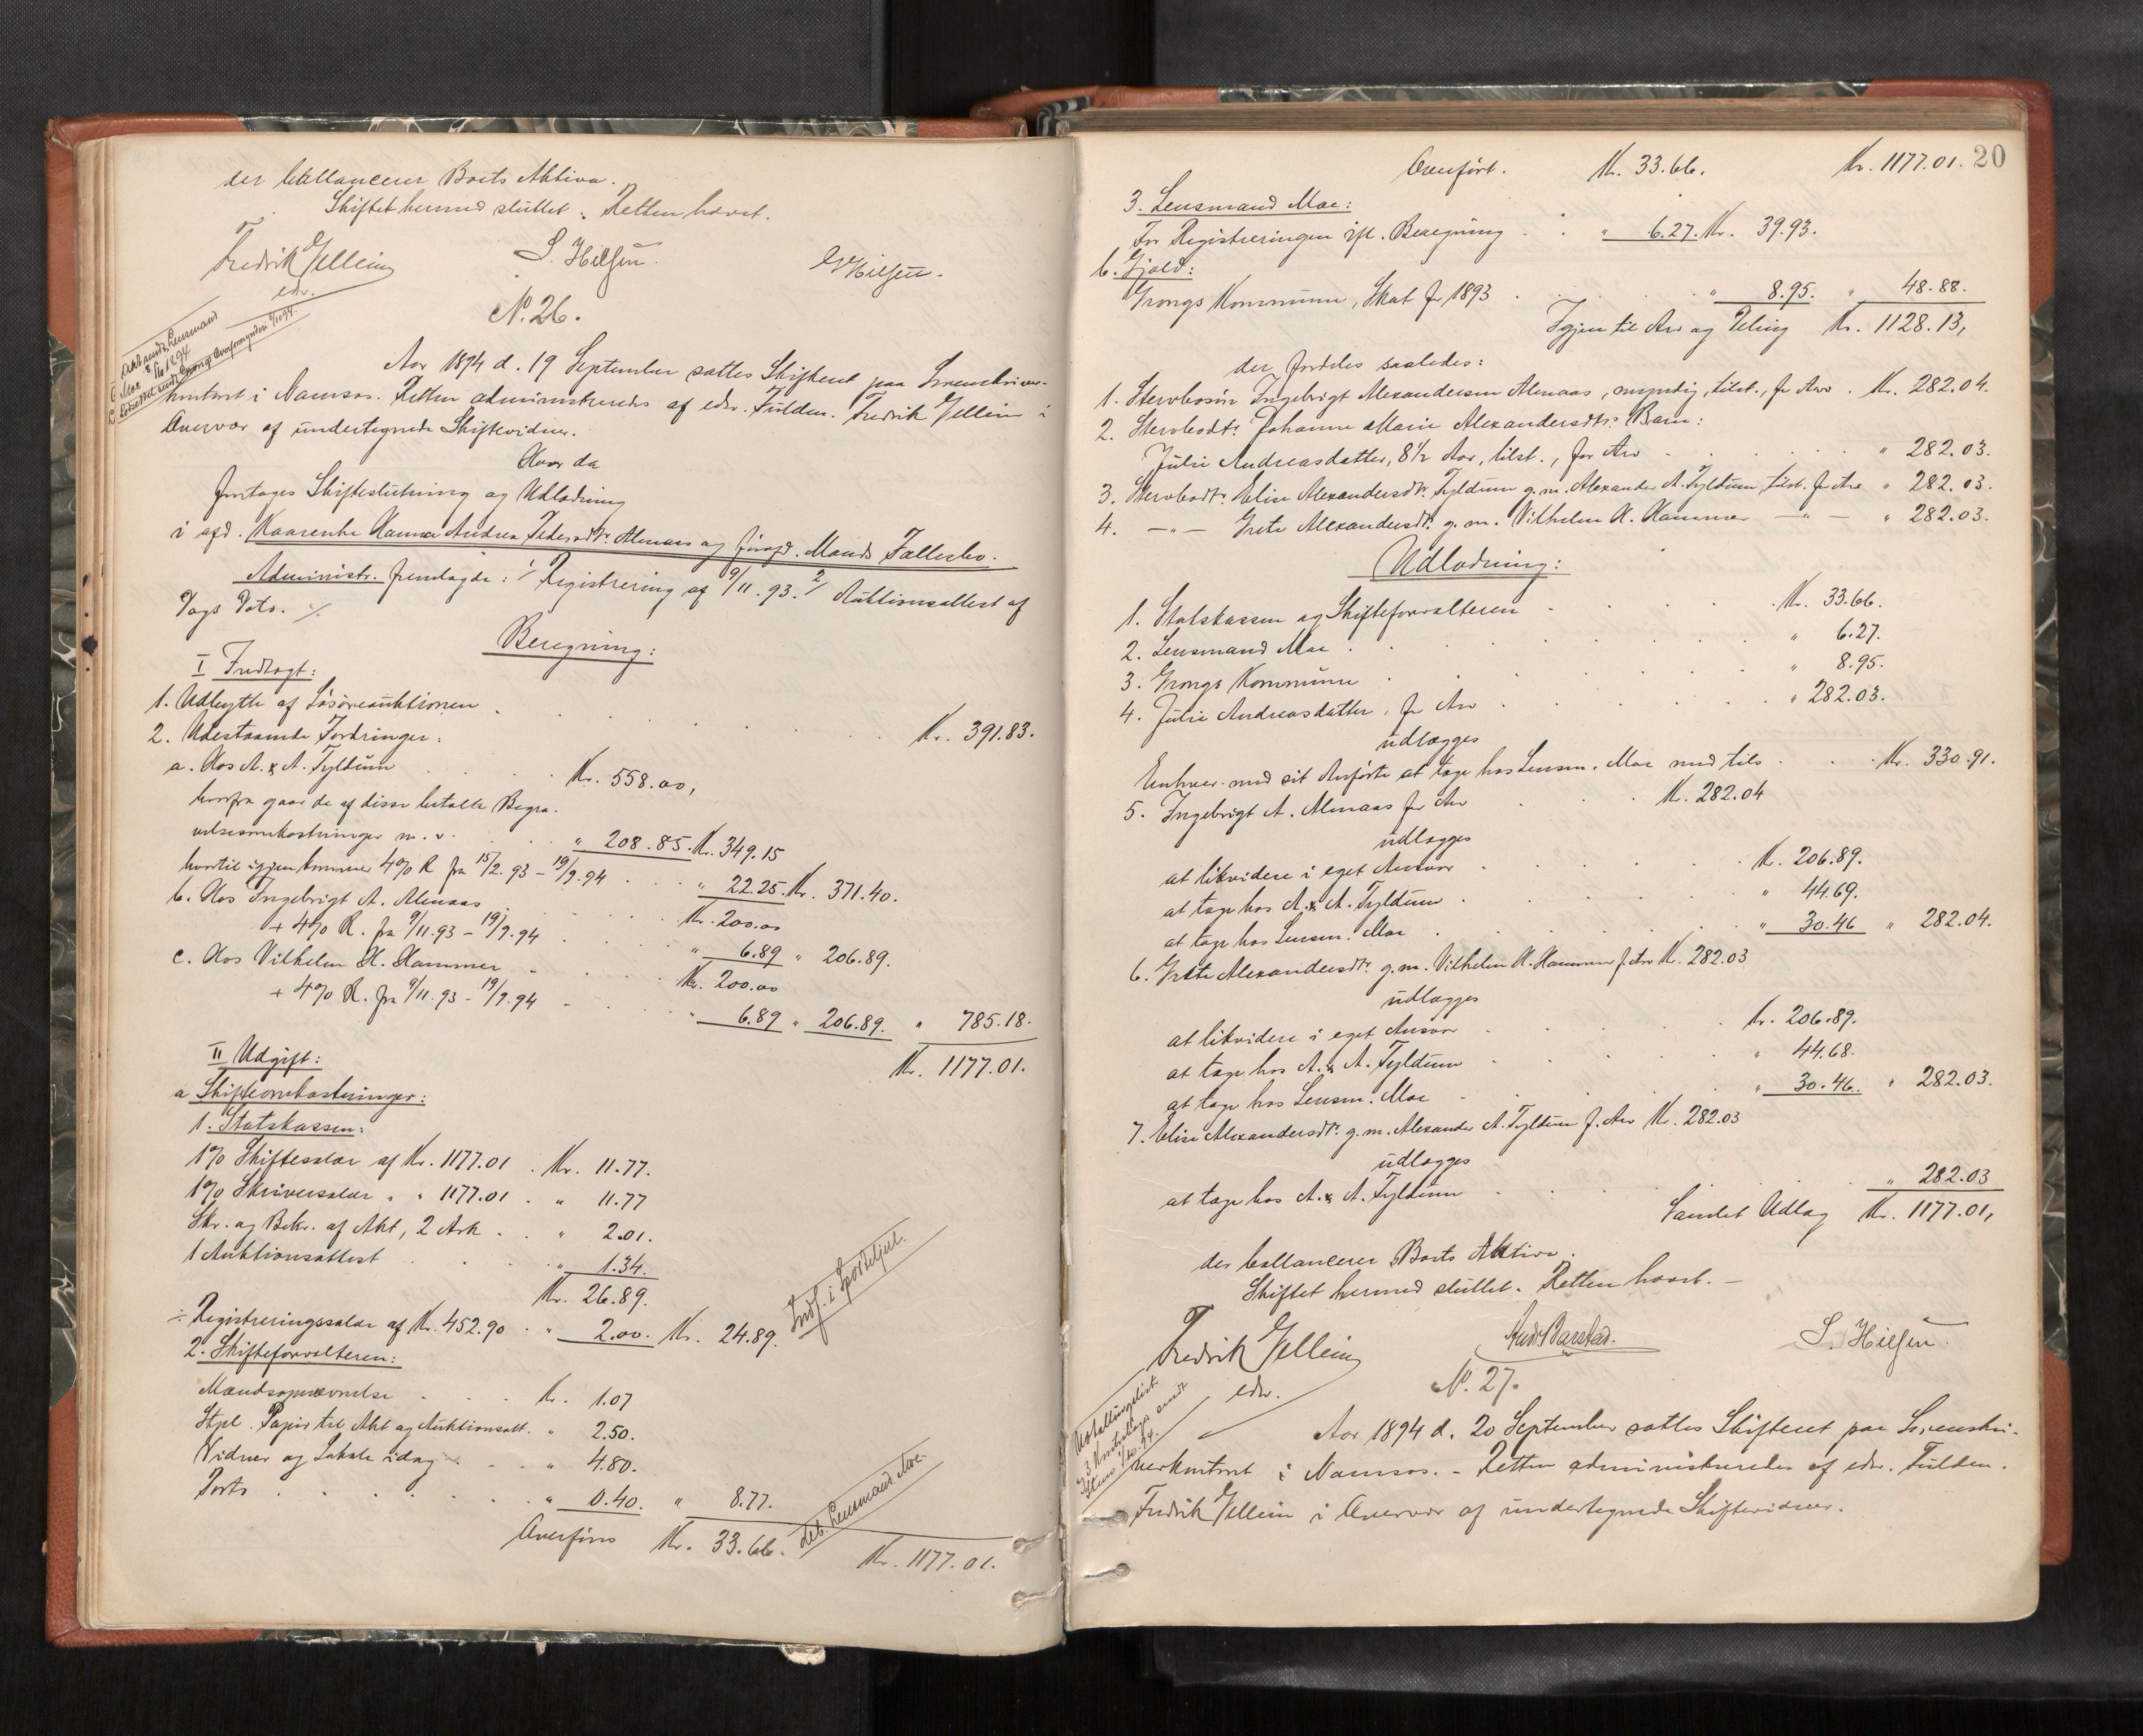 der ballancerer Boets Aktiva.
Skiftet hermed sluttet. Retten hævet.
Fredrik Gellein
edv.
S. Hielsen
No. 26.
Aar 1894 d. 19 September sattes Skifteret paa Sorenskriver-
kontoret i Namsos. Retten administreredes af edv. Fuldm. Fredrik Gellein i
Overvær af undertegnede Skiftevidner.
Hvor da
foretoges Skifteslutning og Udlodning
i afd. Kaarenke Hanna Andrea Pedersdtr. Almaas og forafd. Mands Fællesbo.
Administr. fremlagde: 1/ Registrering af 9/11.93. 2/ Auktionsattest af
Dags Dato. ./.
Beregning:
I Indtægt:
1. Udbytte af Løsøreauktionen . . . . . Kr. 391.83.
2. Udestaaende Fordringer:
a. Hos A. & A. Fyldum . . . Kr. 558.00,
hvorfra gaar de af disse betalte Begra-
velsesomkostninger m. v. . . " 208.85. Kr. 349.15
hvortil igjen kommer 4% R. fra 15/2.93 - 19/9.94 . . " 22.25. Kr. 371.40.
b. Hos Ingebrigt A. Almaas . . . Kr. 200.00
+ 4% R. fra 9/11.93 - 19/9.94 . . . " 6.89 " 206.89.
c. Hos Vilhelm H. Hammer . . . Kr. 200.00
+ 4% R. fra 9/11.93 - 19/9.94 . . . " 6.89 " 206.89. " 785.18.
Kr. 1177.01.
II Udgift:
a Skifteomkostninger:
1. Statskassen:
1% Skiftesalær af Kr. 1177.01 . Kr. 11.77.
1% Skriversalær " " 1177.01 . " 11.77
Skr. og Bekr. af Akt, 2 Ark . . " 2.01.
1 Auktionsattest . . . " 1.34.
Kr. 26.89.
÷ Registreringssalær af Kr. 452.90 . " 2.00. Kr. 24.89.
Indf. i Sporteljul.
2. Skifteforvalteren:
Mændsopnævnelse . . . Kr. 1.07
Stpl. Papir til Akt og Auktionsatt. " 2.50.
Vidner og Lokale idag . . . " 4.80.
Porto . . . . . " 0.40. " 8.77.
deb. Lensmand Moe.
Overføres Kr. 33.66. Kr. 1177.01.
20
Overført. Kr. 33.66. Kr. 1177.01.
3. Lensmand Moe:
For Registreringen ifl. Beregning . . " 6.27. Kr. 39.93.
b. Gjæld:
Grongs Kommune, Skat for 1893 . . . . " 8.95. " 48.88.
Igjen til Arv og Deling Kr. 1128.13,
der fordeles saaledes:
1. Stervbosøn Ingebrigt Alexandersen Almaas, myndig, tilst., for Arv . Kr. 282.04.
2. Stervbodtr. Johanne Marie Alexandersdtrs. Barn:
Julie Andreasdatter, 8 1/2 Aar, tilst., for Arv . . . . " 282.03.
3. Stervbodtr. Elise Alexandersdtr. Fyldum g. m. Alexander A. Fyldum, tilst. for Arv " 282.03.
4. —"— Grete Alexandersdtr. g. m. Vilhelm H. Hammer —"— " 282.03.
Udlodning:
1. Statskassen og Skifteforvalteren . . . . Kr. 33.66.
2. Lensmand Moe . . . . . " 6.27.
3. Grongs Kommune . . . . " 8.95.
4. Julie Andreasdatter, for Arv . . . . " 282.03.
udlægges
Enhver med sit Anførte at tage hos Lensm. Moe med tils. . . . Kr. 330.91.
5. Ingebrigt A. Almaas for Arv . . Kr. 282.04
udlægges
at likvidere i eget Ansvar . . . . Kr. 206.89.
at tage hos A. & A. Fyldum . . . . " 44.69.
at tage hos Lensm. Moe . . . . " 30.46 " 282.04.
6. Grete Alexandersdtr. g. m. Vilhelm H. Hammer f. Arv Kr. 282.03
udlægges
at likvidere i eget Ansvar . . . . Kr. 206.89.
at tage hos A. & A. Fyldum . . . . " 44.68.
at tage hos Lensm. Moe . . . . " 30.46. " 282.03.
7. Elise Alexandersdtr. g. m. Alexander A. Fyldum f. Arv Kr. 282.03
udlægges
at tage hos A. & A. Fyldum . . . . " 282.03
Samlet Udlæg Kr. 1177.01,
der ballancerer Boets Aktiva.
Skiftet hermed sluttet. Retten hævet. —
Fredrik Gellein
edv.
Andr. Barstad.
S. Hielsen
No. 27.
Aar 1894 d. 20 September sattes Skifteret paa Sorenskri-
verkontoret i Namsos. - Retten administreredes af edv. Fuldm.
Fredrik Gellein i Overvær af undertegnede Skiftevidner.